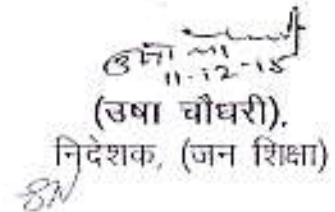 11-12-15
(उषा चौधरी),
निदेशक, (जन शिक्षा)